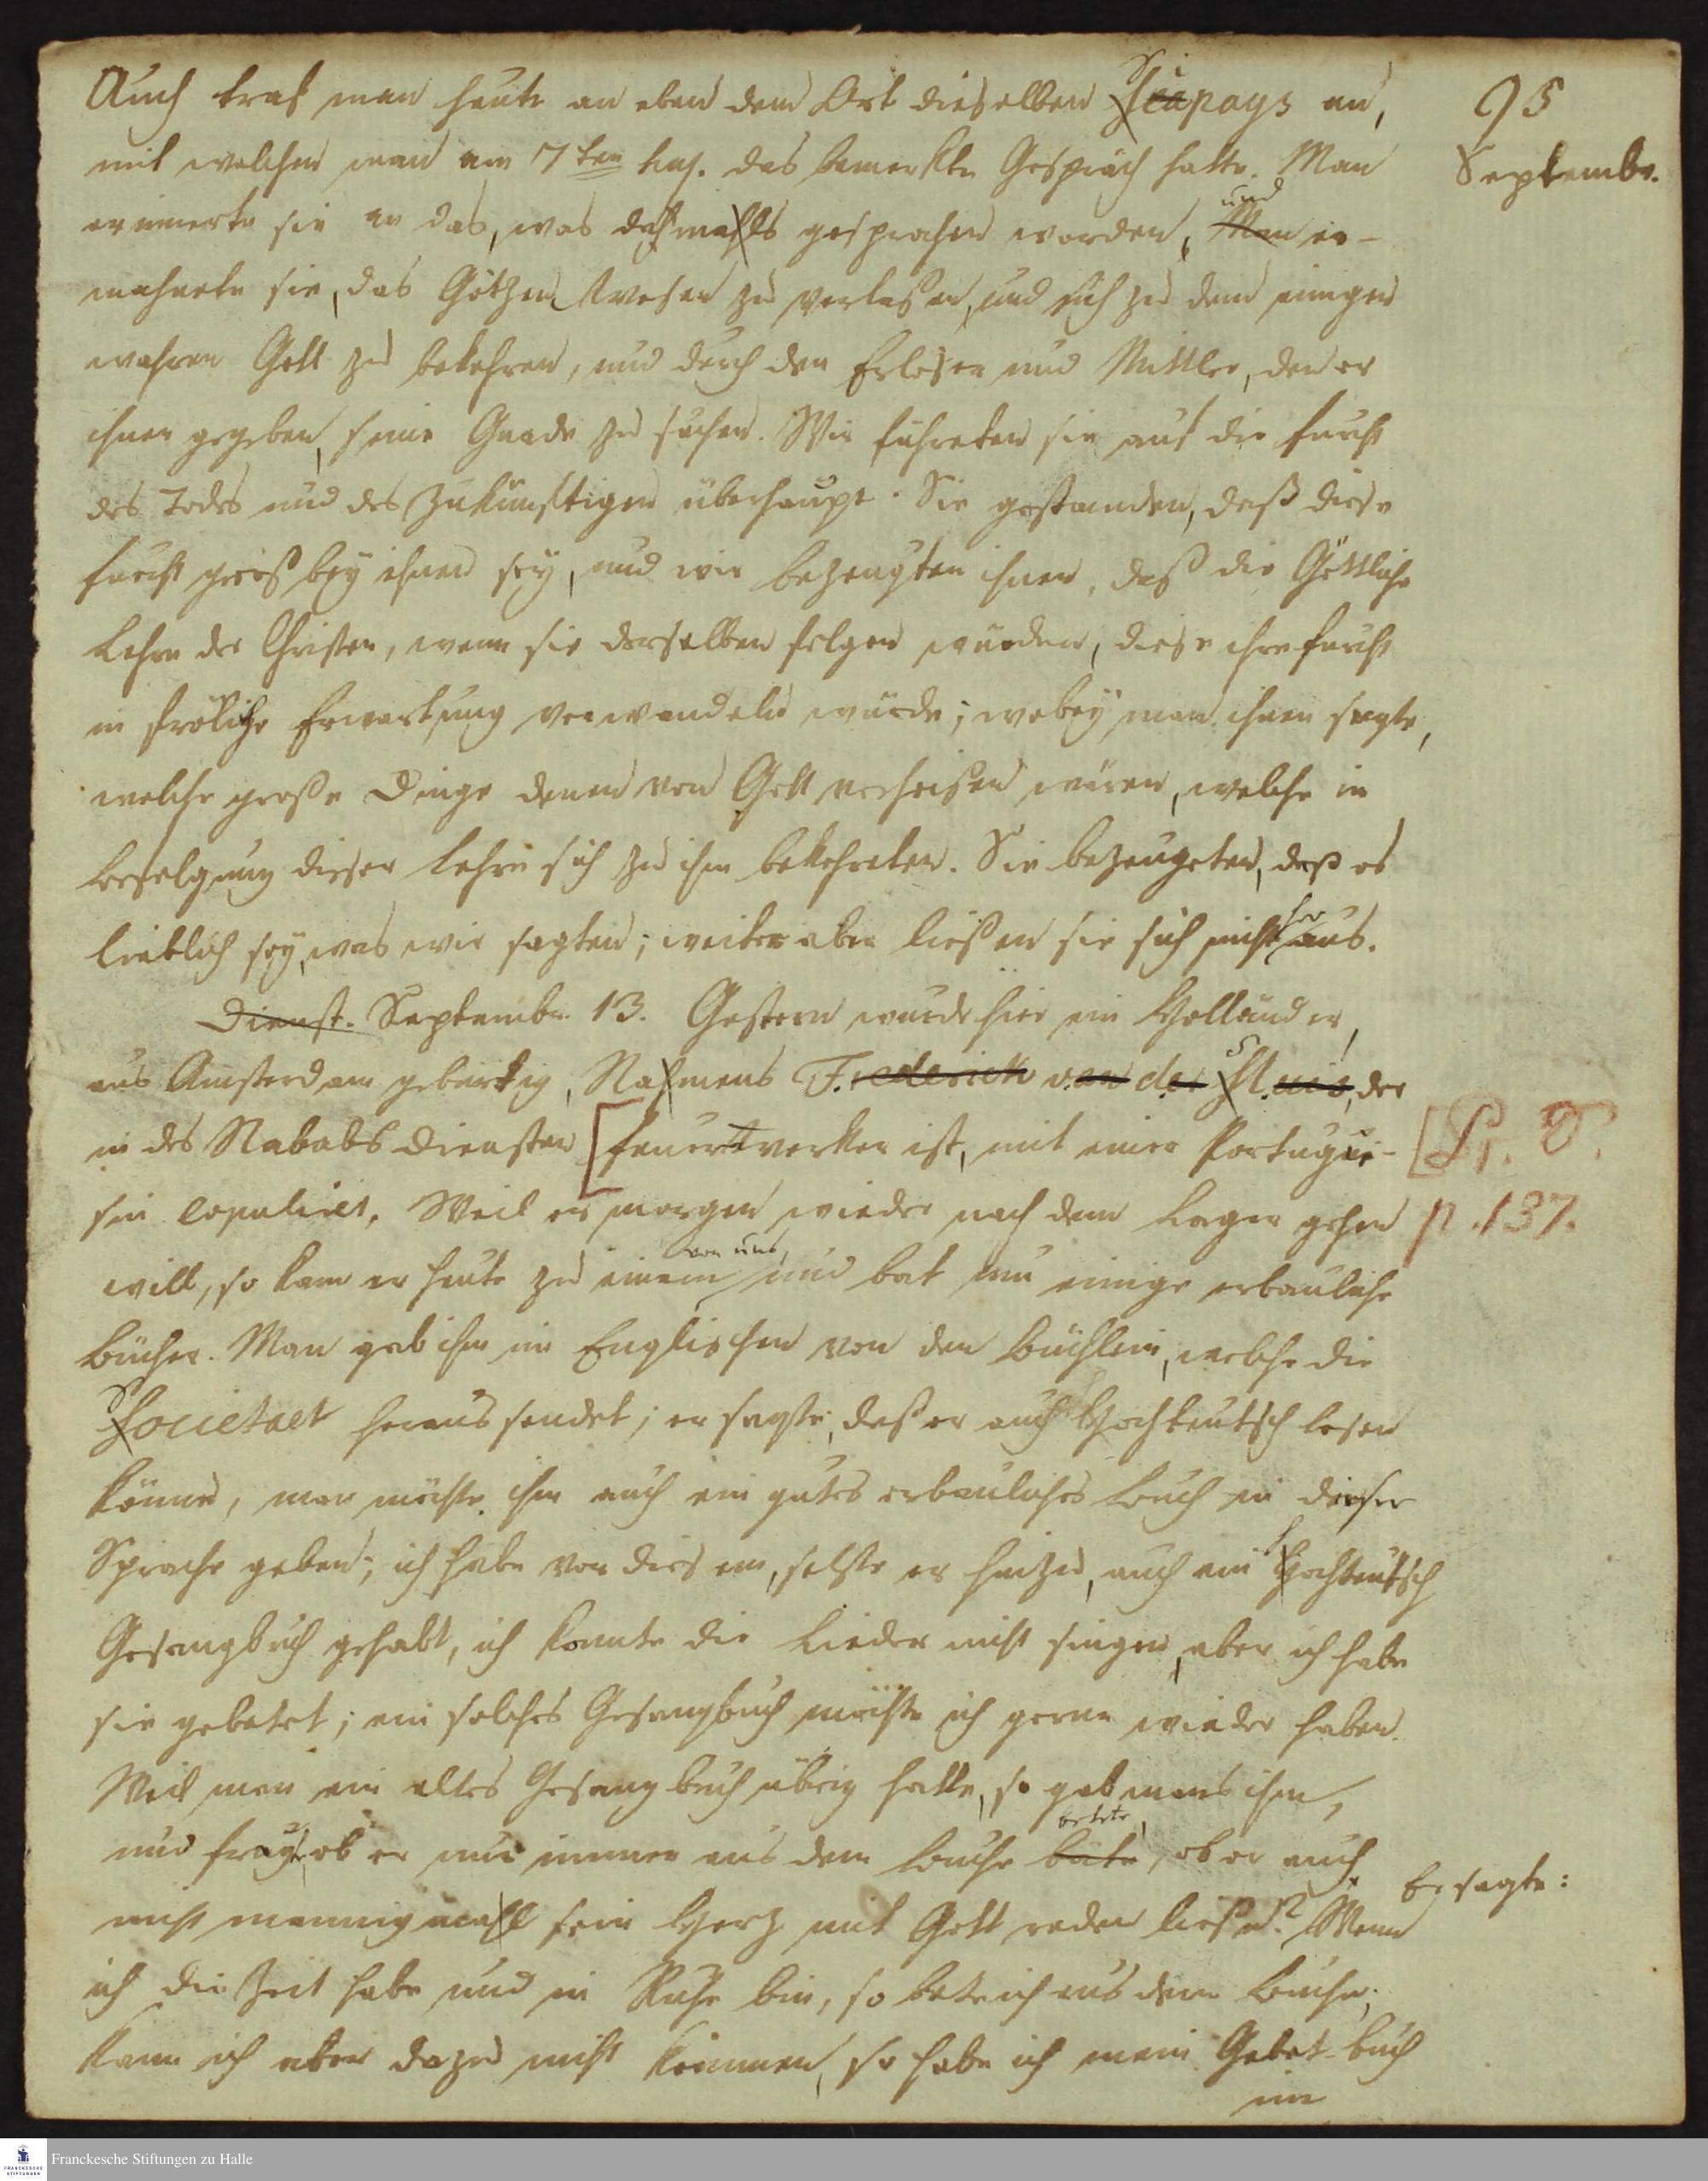 95
Septembr.
Auch traf man heute an eben dem Ort dieselben Seapoys an,
mit welchen man am 7ten huj. das bemerkte Gespräch hatte. Man
erinnerte sie an das, was dahmahls gesprochen worden, und Man er-
mahnete sie, das Götzen Wesen zu verlaßen, und sich zu dem einigen
wahren Gott zu bekehren, und durch den Erlöser und Mittler, den er
ihnen gegeben, seine Gnade zu suchen. Wir führeten sie auf die Furcht
des Todes und des Zukünftigen überhaupt. Sie gestanden, daß diese
Furcht groß bey ihnen sey, und wir bezeugten ihnen, daß die Göttliche
Lehre der Christen, wenn sie derselben folgen würden, diese ihre Furcht
in fröliche Erwartung verwandeln würde; wobey man ihnen sagte,
welche große Dinge denen von Gott verheißen wären, welche in
Befolgung dieser Lehre sich zu ihm bekehreten. Sie bezeugeten, daß es
lieblich sey, was wir sagten; weiter aber ließen sie sich nicht her aus.
Dienst. Septembr. 13. Gestern wurde hier ein Holländer,
aus Amsterdam gebürtig, Nahmens Frederick van der Sluis, der
in des Nababs Diensten [Feuerwerker ist, mit einer Portugie-
sin copulirt. Weil er morgen wieder nach dem Lager gehen
[Pr. T.
p. 137.
will, so kam er heute zu einem von uns, und bat um einige erbauliche
Bücher. Man gab ihm im Englischen von den Büchlein, welche die
Societaet heraus sendet; er sagte, daß er auch Hochteutsch lesen
könne, man möchte ihm auch ein gutes erbauliches Buch in dieser
Sprache geben; ich habe vor diesem, setzte er hinzu, auch ein hochteutsch
Gesangbuch gehabt, ich konnte die Lieder nicht singen, aber ich habe
sie gebetet; ein solches Gesangbuch möchte ich gerne wieder haben.
Weil man ein altes Gesangbuch übrig hatte, so gab mans ihm,
und fragte, ob er nur immer aus dem Buche bäte betete, ob er auch
nicht mannigmahl sein Herz mit Gott reden ließe? Er sagte: Wenn
ich die Zeit habe und in Ruhe bin, so bete ich aus dem Buche;
kann ich aber dazu nicht kommen, so habe ich mein Gebet-buch
im
Franckesche Stiftungen zu Halle